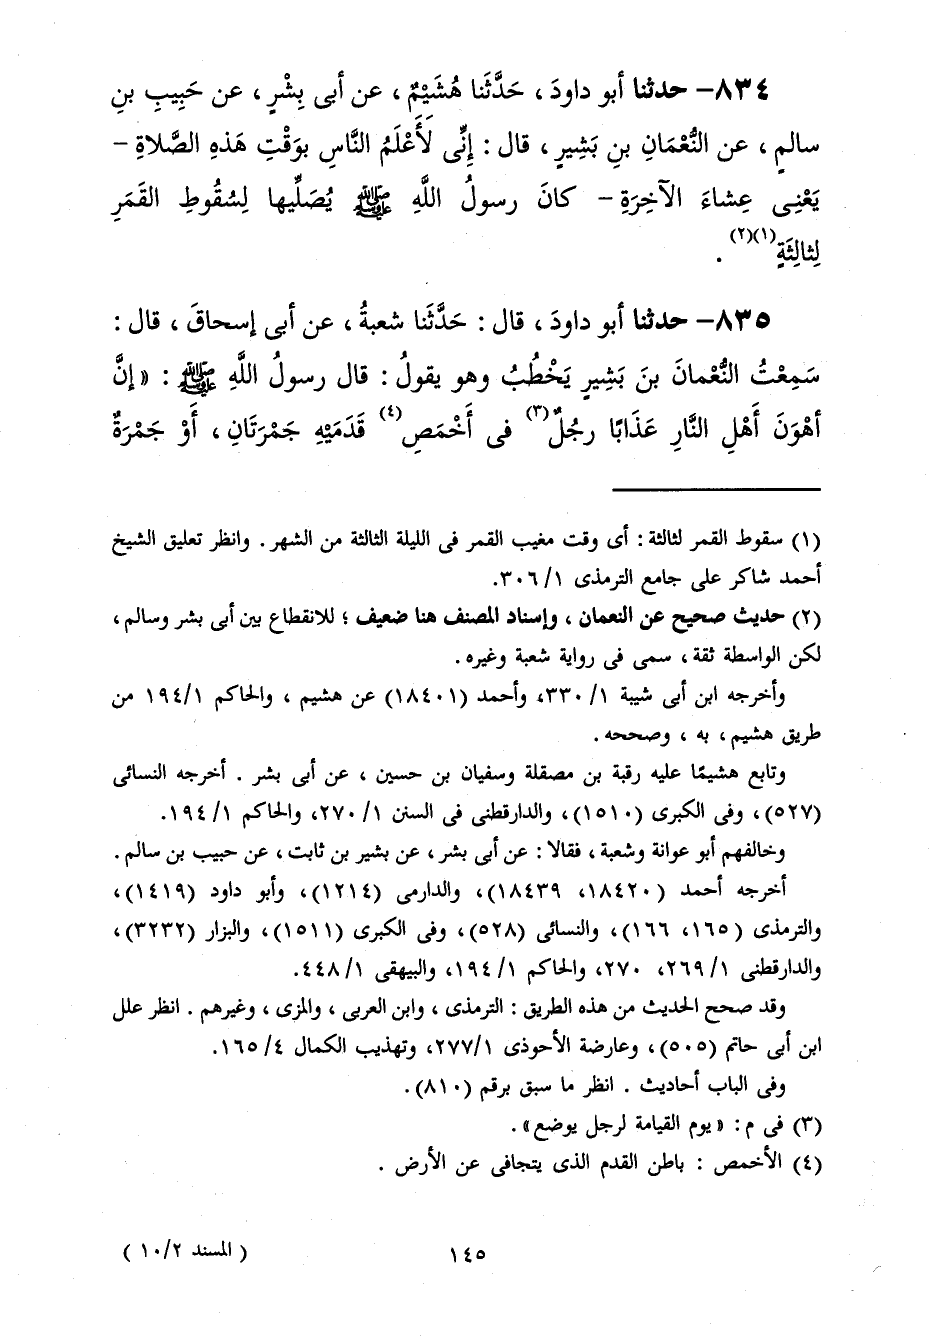 ٨٣٤- حدثنا أبو داودَ ، حَدَّثَنا هُشَيْمٌ ، عن أبى بِشْرٍ ، عن حَبِيبِ بنِ
سالمٍ ، عن النُّعْمَانِ بنِ بَشِيرٍ ، قال : إنِّى لَأَعْلَمُ النَّاسِ بوَقْتِ هَذِهِ الصَّلاةِ -
يَعْنِى عِشاءَ الآخِرَةِ - كانَ رسولُ اللَّهِ ﷺ يُصَلِّيها لِسُقُوطِ القَمَرِ
لِثالِثَةٍ(١)(٢) .
٨٣٥- حدثنا أبو داودَ ، قال : حَدَّثَنا شعبةُ ، عن أبى إسحاقَ ، قال :
سَمِعْتُ النُّعْمانَ بنَ بَشِيرٍ يَخْطُبُ وهو يقولُ : قال رسولُ اللَّهِ ﷺ : « إنَّ
أهْوَنَ أَهْلِ النَّارِ عَذَابًا رجُلٌ(٣) فى أَخْمَصِ(٤) قَدَمَيْهِ جَمْرَتَانِ ، أَوْ جَمْرَةٌ
(١) سقوط القمر لثالثة : أى وقت مغيب القمر فى الليلة الثالثة من الشهر . وانظر تعليق الشيخ
أحمد شاكر على جامع الترمذى ١/ ٣٠٦.
(٢) حديث صحيح عن النعمان ، وإسناد المصنف هنا ضعيف ؛ للانقطاع بين أبى بشر وسالم ،
لكن الواسطة ثقة ، سمى فى رواية شعبة وغيره .
وأخرجه ابن أبى شيبة ١/ ٣٣٠، وأحمد (١٨٤٠١) عن هشيم ، والحاكم ١/ ١٩٤ من
طريق هشيم ، به ، وصححه .
وتابع هشيمًا عليه رقبة بن مصقلة وسفيان بن حسين ، عن أبى بشر . أخرجه النسائى
(٥٢٧)، وفى الكبرى (١٥١٠)، والدارقطنى فى السنن ١/ ٢٧٠، والحاكم ١/ ١٩٤.
وخالفهم أبو عوانة وشعبة ، فقالا : عن أبى بشر ، عن بشير بن ثابت ، عن حبيب بن سالم .
أخرجه أحمد (١٨٤٢٠، ١٨٤٣٩)، والدارمى (١٢١٤)، وأبو داود (١٤١٩)،
والترمذى (١٦٥، ١٦٦)، والنسائى (٥٢٨)، وفى الكبرى (١٥١١)، والبزار (٣٢٣٢)،
والدارقطنى ١/ ٢٦٩، ٢٧٠، والحاكم ١/ ١٩٤، والبيهقى ١/ ٤٤٨.
وقد صحح الحديث من هذه الطريق : الترمذى ، وابن العربى ، والمزى ، وغيرهم . انظر علل
ابن أبى حاتم (٥٠٥)، وعارضة الأحوذى ١/ ٢٧٧، وتهذيب الكمال ٤/ ١٦٥.
وفى الباب أحاديث . انظر ما سبق برقم (٨١٠).
(٣) فى م : « يوم القيامة لرجل يوضع» .
(٤) الأخمص : باطن القدم الذى يتجافى عن الأرض .
١٤٥
( المسند ٢/ ١٠ )